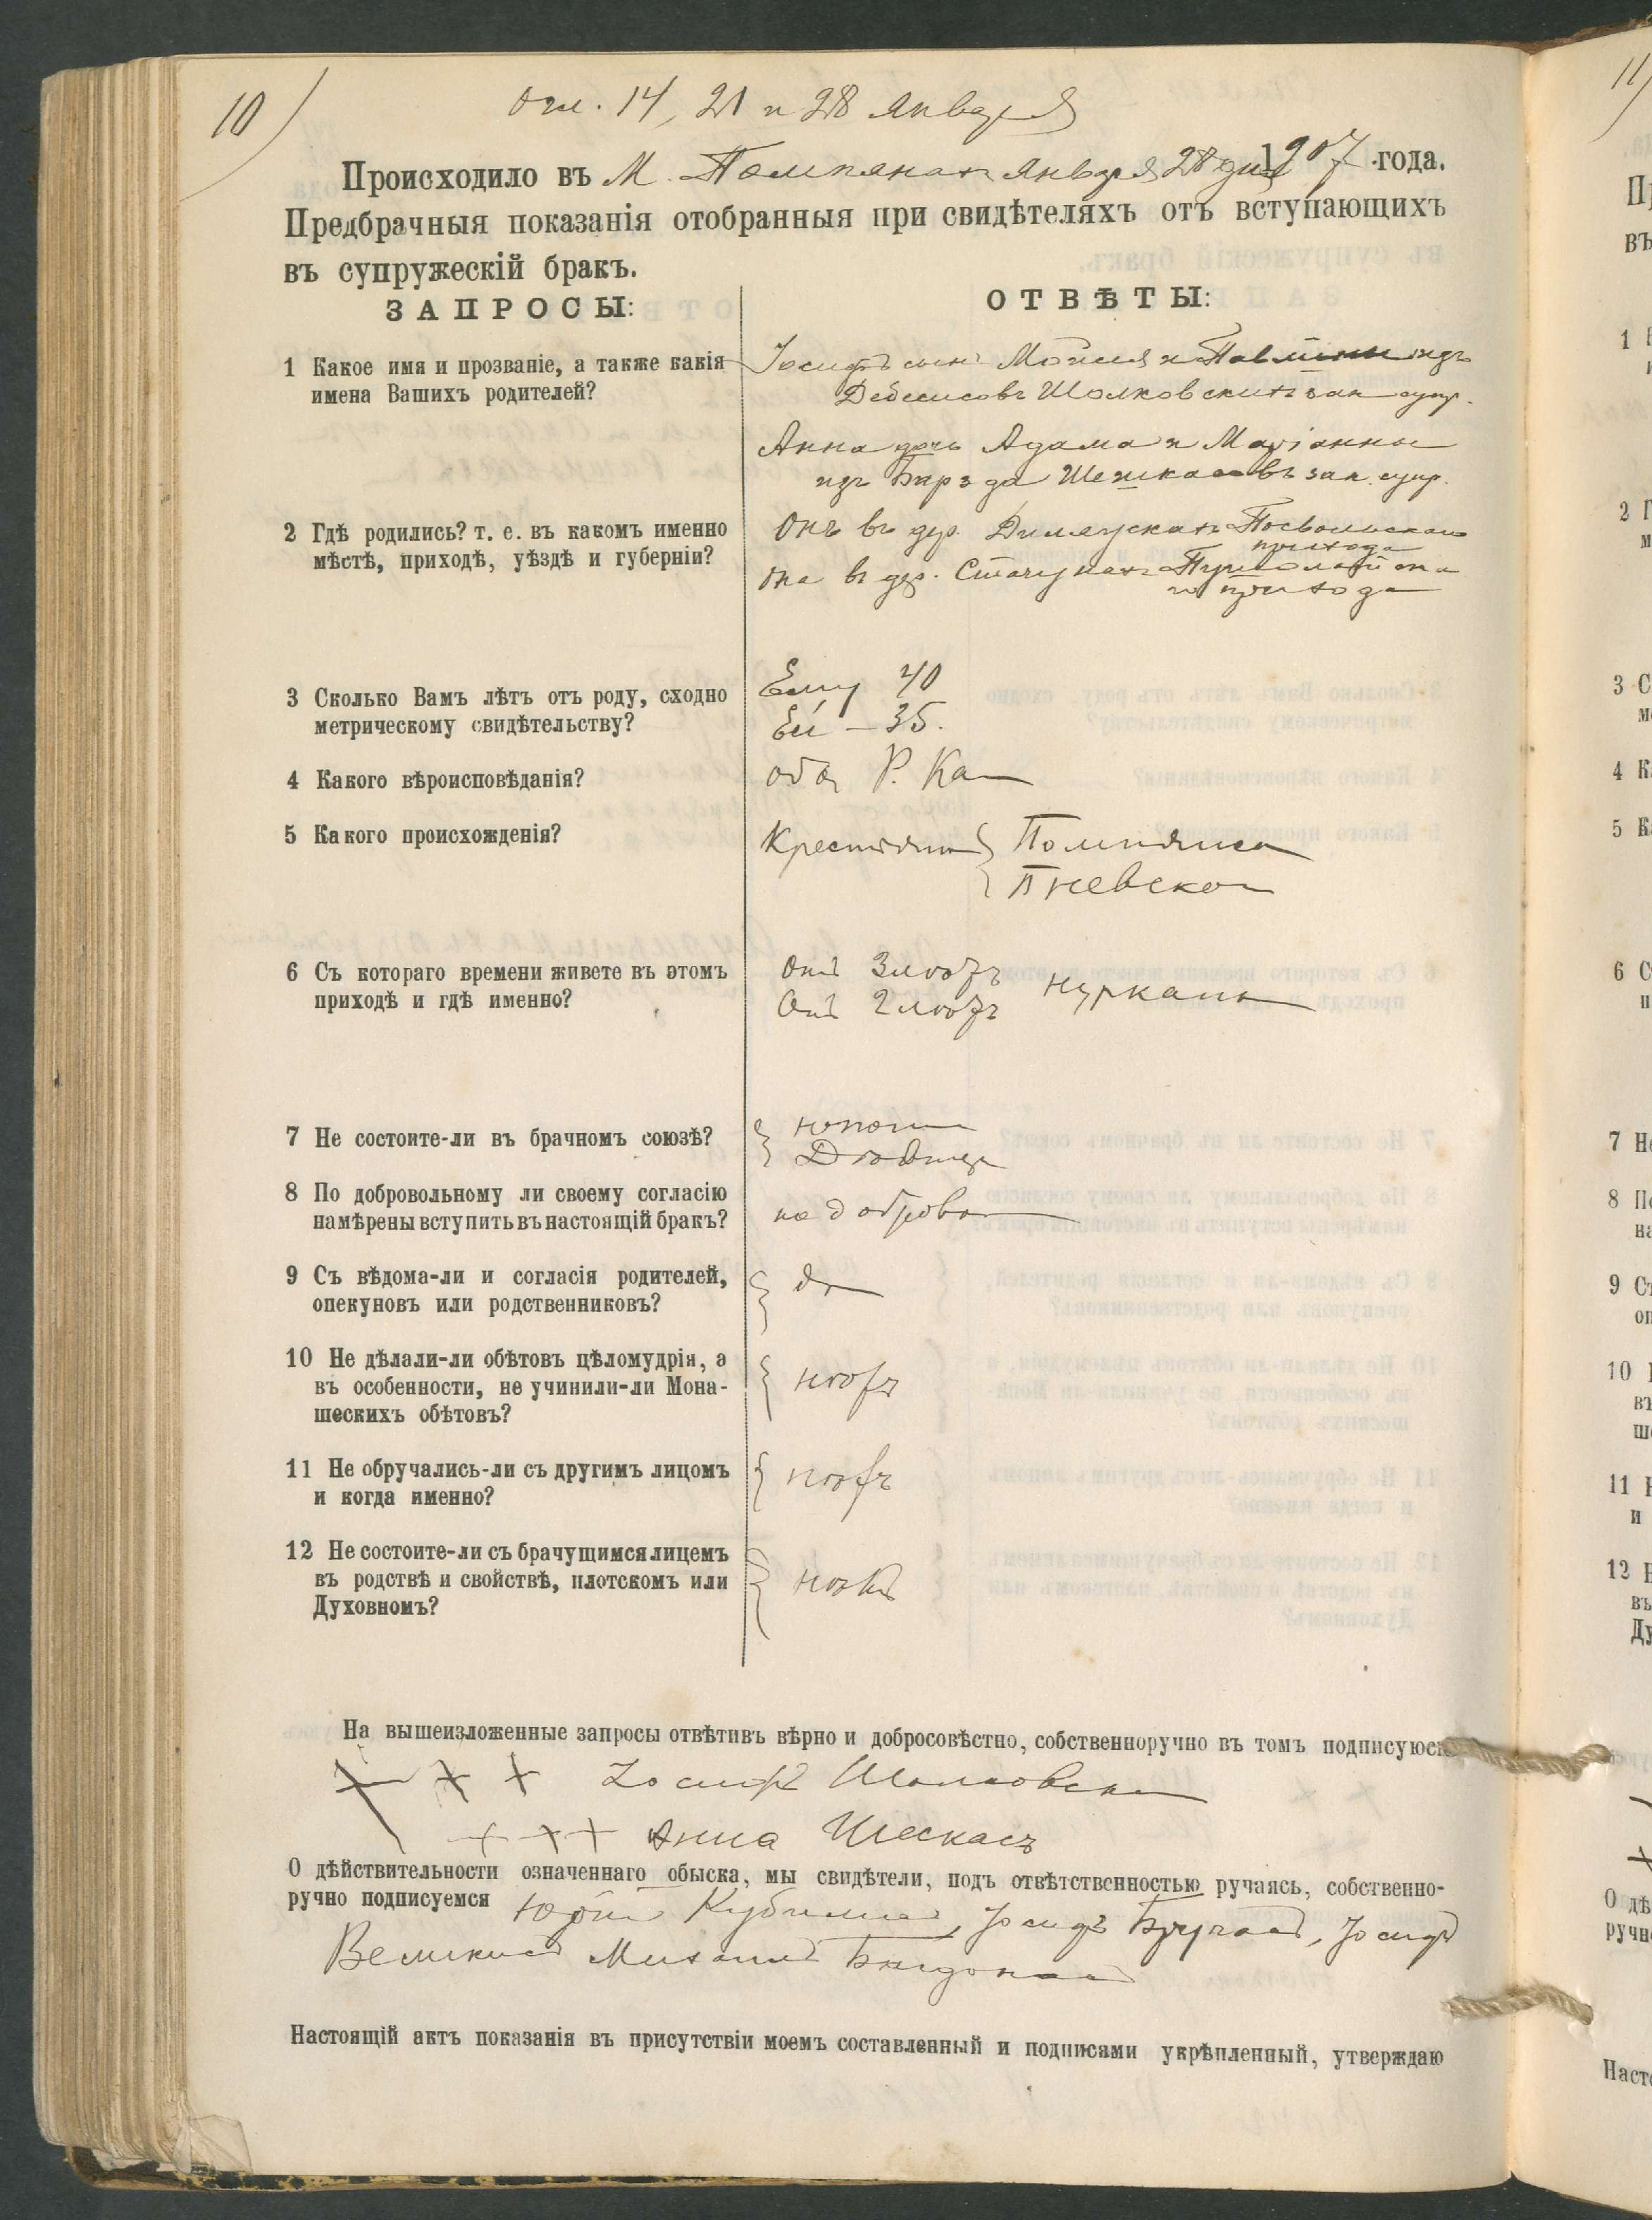 10)
огл. 14, 21 и 28 Января
Происходило въ М. Помпянахъ Января 28 дня 1907 года.
Предбрачныя показанія отобранныя при свидѣтеляхъ отъ вступающихъ
въ супружескій бракъ.
ЗАПРОСЫ:
ОТВѢТЫ:
1 Какое имя и прозваніе, а также какія
имена Вашихъ родителей?
Іосифъ сынъ Моисея и Павлины изъ
Шолковскихъ зак супр.
Анна дочь Адама и Маріанны
изъ зак. супр.
2 Гдѣ родились? т. е. въ какомъ именно
мѣстѣ, приходѣ, уѣздѣ и губерніи?
Онъ въ дер. Посвольскаго
прихода
Она въ дер.
го прихода
3 Сколько Вамъ лѣтъ отъ роду, сходно
метрическому свидѣтельству?
Ему 40
Ей – 35.
4 Какого вѣроисповѣданія?
оба Р. Ка
5 Какого происхожденія?
Крестьяне Помпянск
Пневско
6 Съ котораго времени живете въ этомъ
приходѣ и гдѣ именно?
Онъ 3 лѣтъ
Она 2 лѣтъ
7 Не состоите-ли въ брачномъ союзѣ?
юнош
Дѣвица
8 По добровольному ли своему согласію
намѣрены вступить въ настоящій бракъ?
по доброво
9 Съ вѣдома-ли и согласія родителей,
опекуновъ или родственниковъ?
да
10 Не дѣлали-ли обѣтовъ цѣломудрія, а
въ особенности, не учинили-ли Мона-
шескихъ обѣтовъ?
нѣтъ
11 Не обручались-ли съ другимъ лицомъ
и когда именно?
нѣтъ
12 Не состоите-ли съ брачущимся лицемъ
въ родствѣ и свойствѣ, плотскомъ или
Духовномъ?
нѣтъ
На вышеизложенные запросы отвѣтивъ вѣрно и добросовѣстно, собственноручно въ томъ подписуюсь
+ + + Іосифъ Шолковск
+ + + Анна Шескасъ
О дѣйствительности означеннаго обыска, мы свидѣтели, подъ отвѣтственностью ручаясь, собственно-
ручно подписуемся Юрій Іосифъ Іосифъ
Михаилъ
Настоящій актъ показанія въ присутствіи моемъ составленный и подписами укрѣпленный, утверждаю